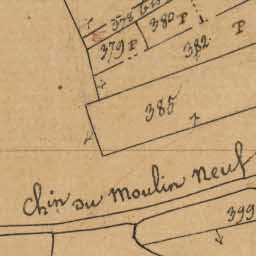 378
380 P
379 P
382
P
385
Chin du Moulin Neuf
399